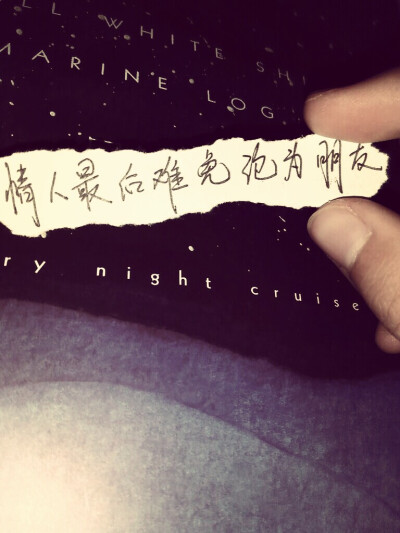 LL WHITE SHI
MARINE LOG
情人最后难免沦为朋友
ry night cruise